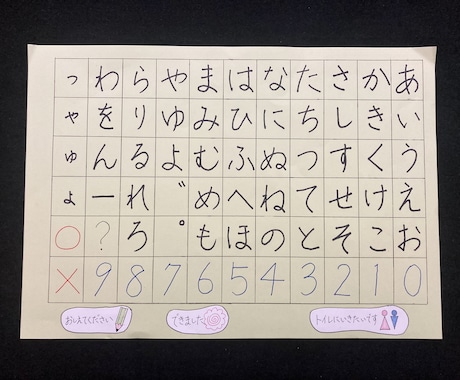 っ わ ら や ま は な た さ か あ
ゃ を り ゆ み ひ に ち し き い
ゅ ん る よ む ふ ぬ つ す く う
ょ ー れ ゛ め へ ね て せ け え
○ ? ろ ゜ も ほ の と そ こ お
× 9 8 7 6 5 4 3 2 1 0
おしえてください
できました
トイレにいきたいです